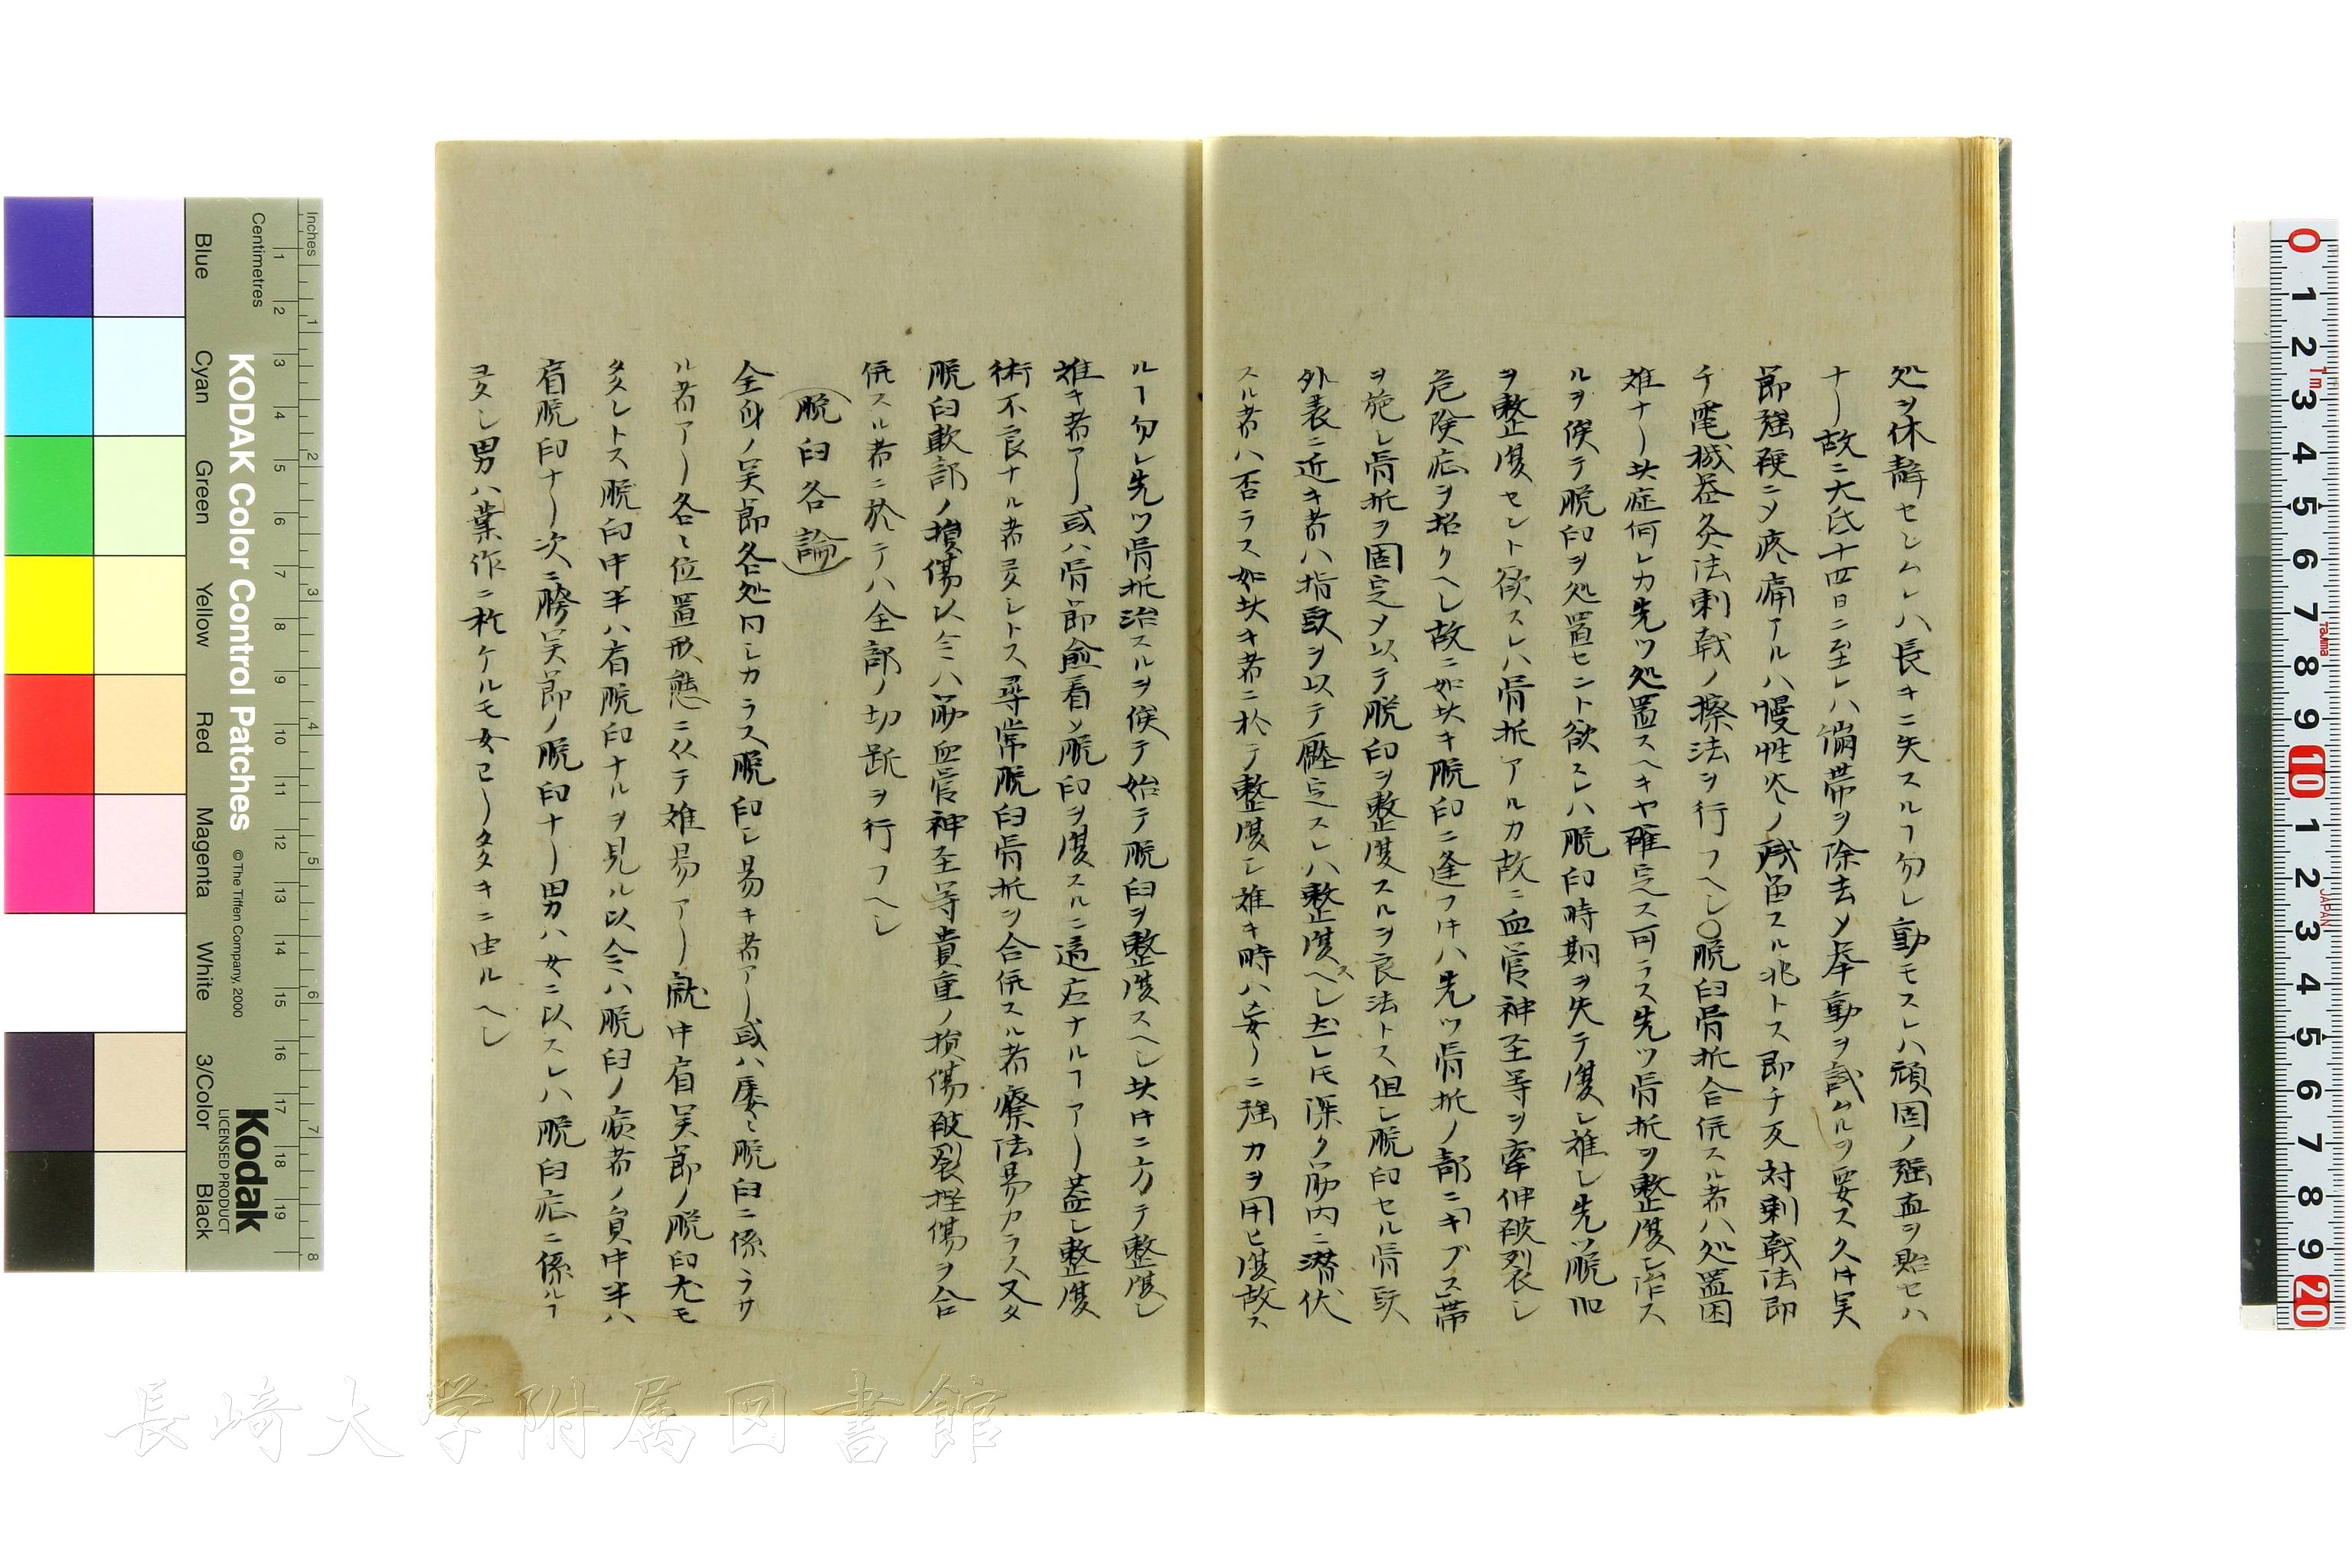 処ヲ休静セシムレハ長キニ失スルヿ勿レ動モスレハ頑固ノ強直ヲ貽セハ
ナリ故ニ大氐十四日ニ至レハ繃帯ヲ除去メ挙動ヲ試ムルヲ要ス久キ関
節強硬ニメ疼痛アルハ慢性炎ノ残留スル兆トス即チ反対刺戟法即
チ電機器灸法刺戟ノ擦法ヲ行フヘシ〇脱臼骨折合併スル者ハ処置困
難ナリ此症何レカ先ツ処置スヘキヤ確定ス可ラス先ツ骨折ヲ整復シ治ス
ルヲ俟テ脱臼ヲ処置セント欲スレハ脱臼時期ヲ失テ復シ難シ先ツ脱臼
ヲ整復セント欲スレハ骨折アルカ故ニ血管神圣等ヲ牽伸破裂シ
危険症ヲ招クヘシ故ニ如此キ脱臼ニ逢フ时ハ先ツ骨折ノ部ニギブス帯
ヲ施シ骨折ヲ固定メ以テ脱臼ヲ整復スルヲ良法トス但シ脱臼セル骨頭
外表ニ近キ者ハ指頭ヲ以テ壓定スレハ整復スヘシ然レ𪜈深ク筋内ニ潜伏
スル者ハ否ラス如此キ者ニ於テ整復シ難キ時ハ妄リニ強力ヲ用ヒ復故ス
ルヿ勿レ先ツ骨折治スルヲ俟テ始テ脱臼ヲ整復スヘシ此时ニ方テ整復シ
難キ者アリ或ハ骨節愈着メ脱臼ヲ復スルニ適应ナルヿアリ蓋シ整復
術不良ナル者多シトス尋常脱臼骨折ヲ合併スル者療法易カラス又タ
脱臼軟部ノ損傷以今ハ筋血管神圣等貴重ノ損傷破裂挫傷ヲ合
併スル者ニ於テハ全部ノ切断ヲ行フヘシ
(脱臼各論)
全身ノ関節各処同シカラス脱臼シ易キ者アリ或ハ屡〻脱臼ニ係ラサ
ル者アリ各〻位置形態ニ从テ難易アリ就中肩関節ノ脱臼尤モ
多シトス脱臼中半ハ肩脱臼ナルヲ見ル以今ハ脱臼ノ病者ノ員中半ハ
肩脱臼ナリ次ニ胯関節ノ脱臼ナリ男ハ女ニ以スレハ脱臼症ニ係ルヿ
ヨタシ男ハ業作ニ於ケルモ女ヨリ多キニ由ルヘシ
Inches
Centimetres
KODAK Color Control Patches
© The Tiffen Company, 2000
Kodak
LICENSED PRODUCT
Blue
Cyan
Green
Yellow
Red
Magenta
White
3/Color
Black
長崎大学附属図書館